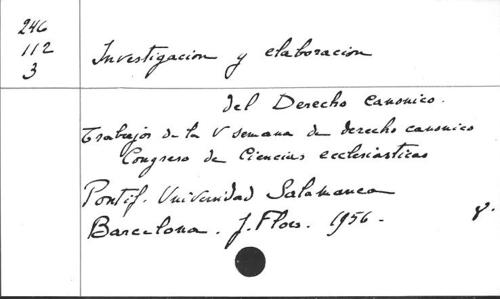 246
112
3
Investigacion y elaboracion
del Derecho canonico.
Trabajos de la V semana de derecho canonico
Congreso de Ciencias eclesiasticas
Pontif. Universidad Salamanca
Barcelona. J. Flors. 1956.